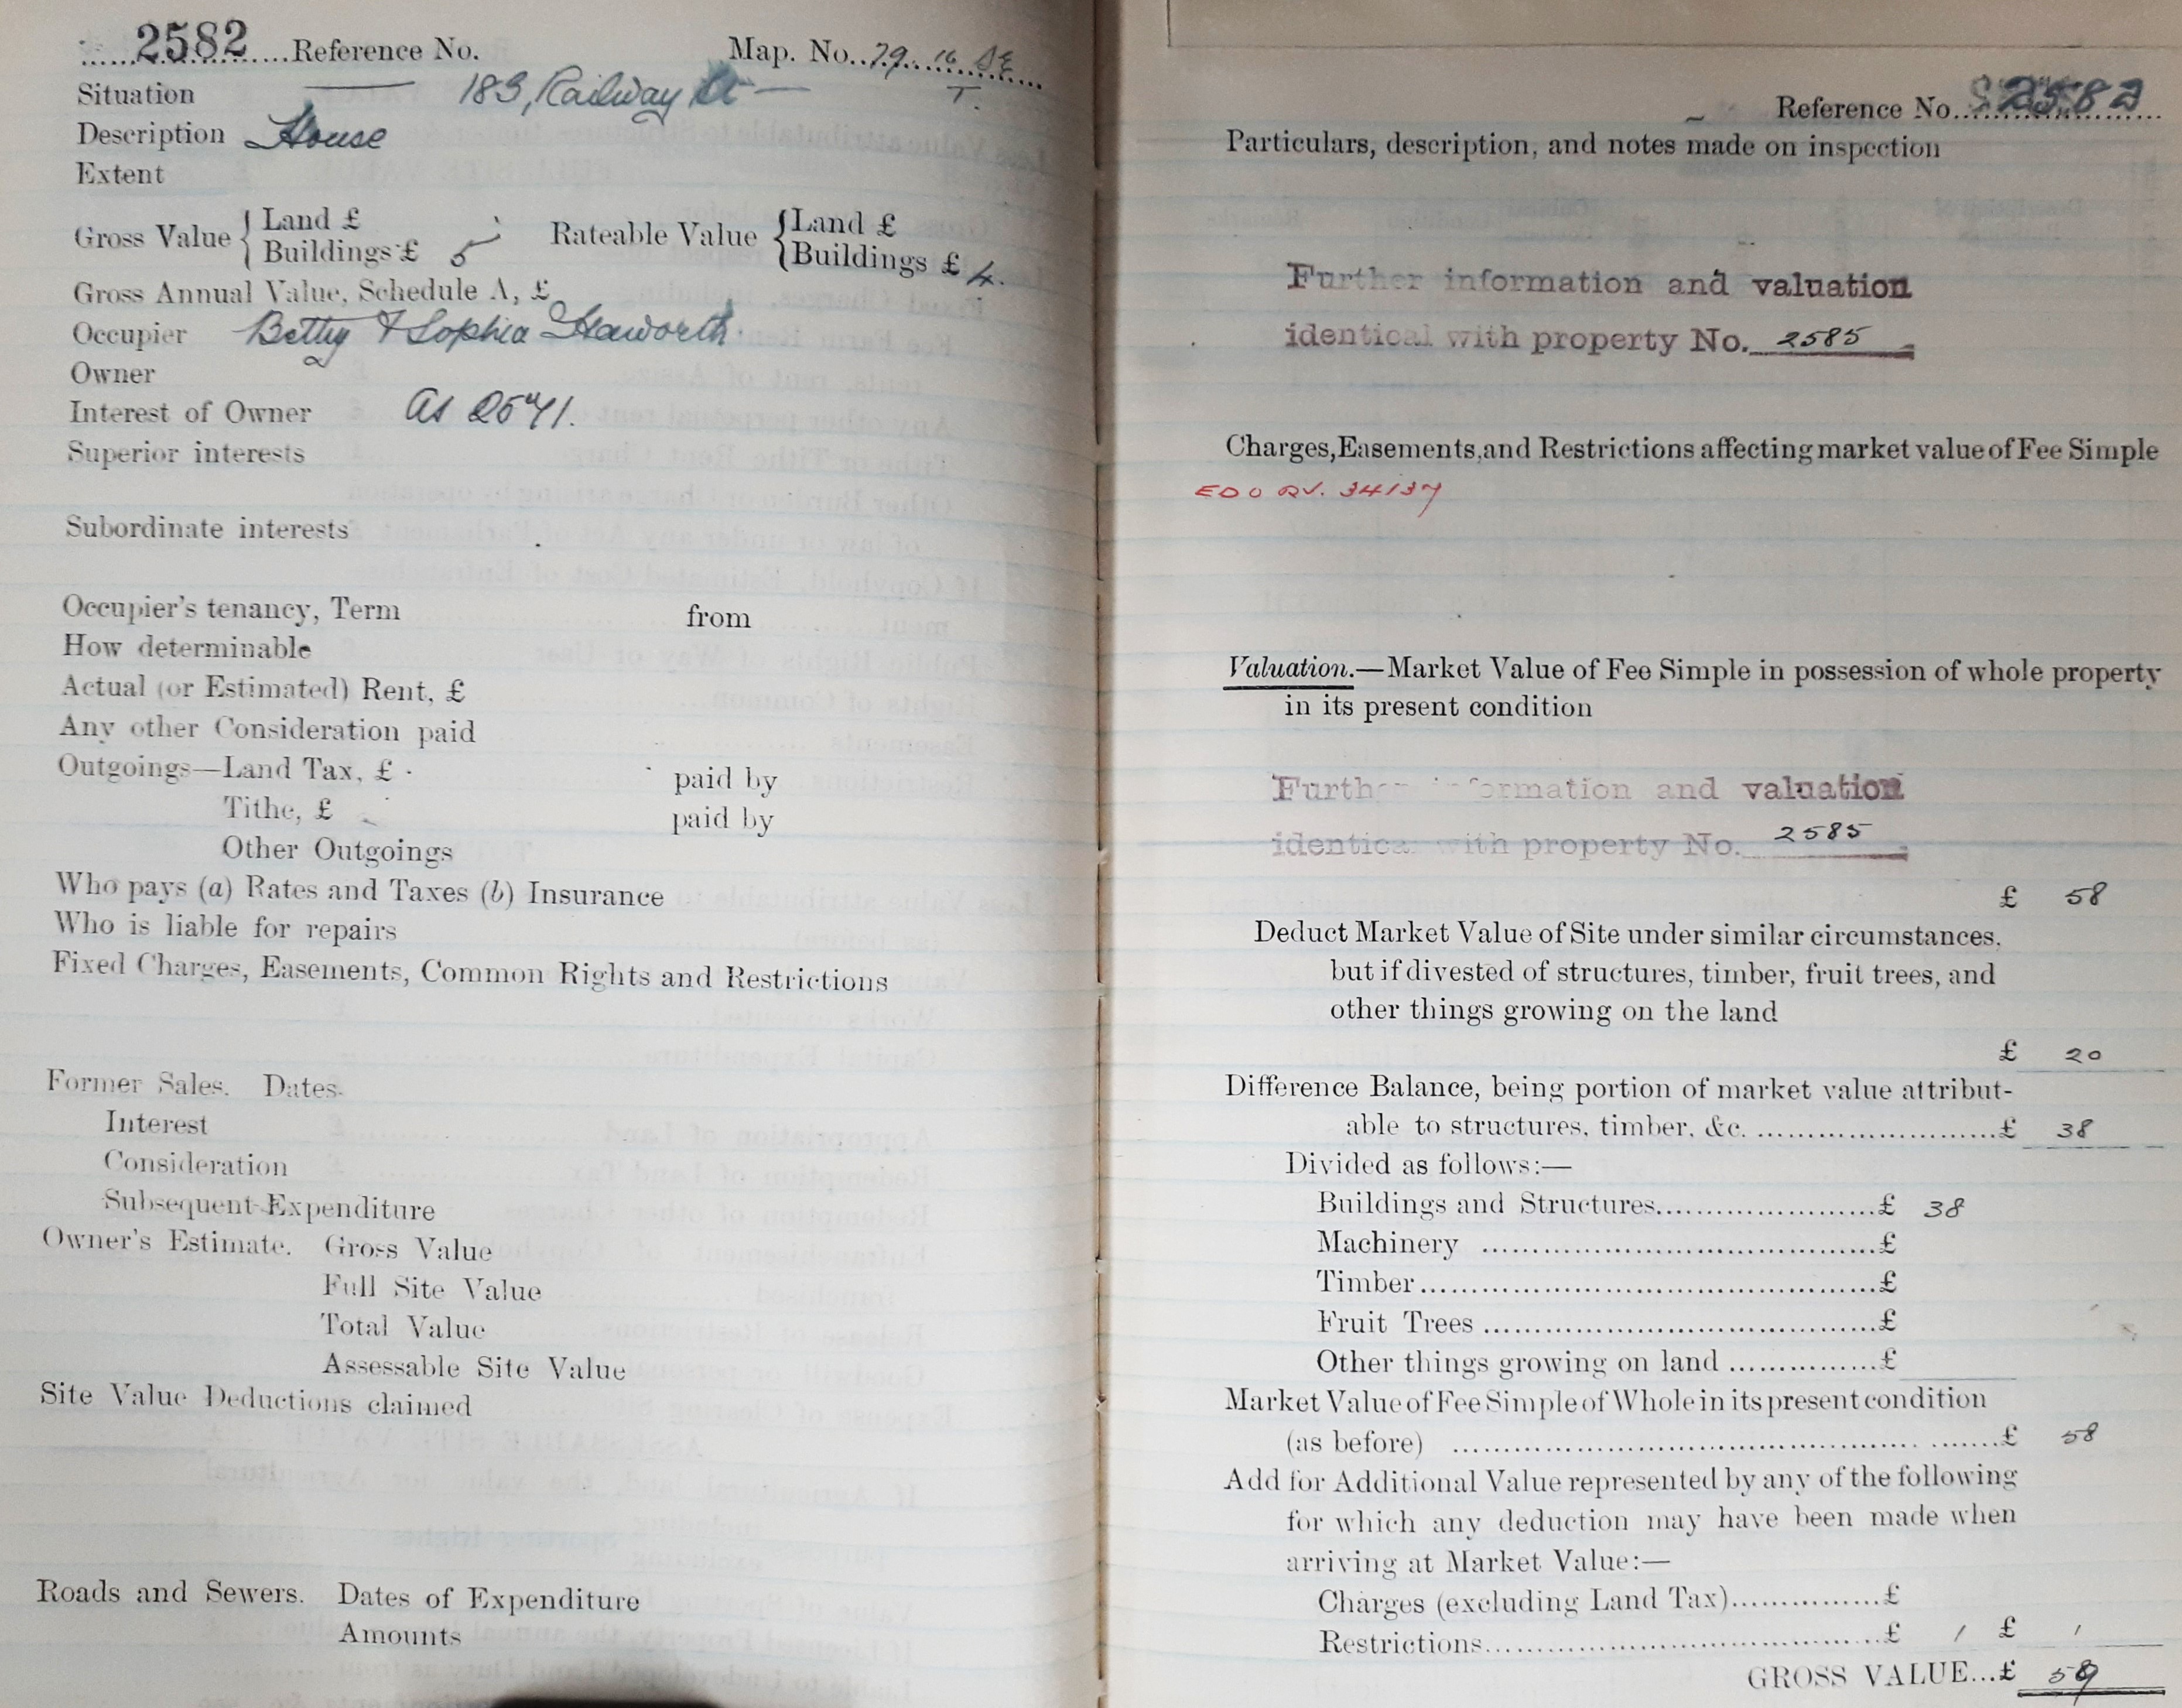 2582 Reference No. Map. No. 79. 16 SE
T.
Situation 183, Railway St
Description House
Extent
Gross Value { Land £
Buildings £ 5 Rateable Value { Land £
Buildings £ 4.
Gross Annual Value, Schedule A, £
Occupier Betty & Sophia Haworth
Owner
Interest of Owner As 2571.
Superior interests
Subordinate interests
Occupier's tenancy, Term from
How determinable
Actual (or Estimated) Rent, £
Any other Consideration paid
Outgoings—Land Tax, £ paid by
Tithe, £ paid by
Other Outgoings
Who pays (a) Rates and Taxes (b) Insurance
Who is liable for repairs
Fixed Charges, Easements, Common Rights and Restrictions
Former Sales. Dates
Interest
Consideration
Subsequent Expenditure
Owner's Estimate. Gross Value
Full Site Value
Total Value
Assessable Site Value
Site Value Deductions claimed
Roads and Sewers. Dates of Expenditure
Amounts
Reference No. 2582
Particulars, description, and notes made on inspection
Further information and valuation
identical with property No. 2585
Charges, Easements, and Restrictions affecting market value of Fee Simple
34137
Valuation.—Market Value of Fee Simple in possession of whole property
in its present condition
Further information and valuation
identical with property No. 2585
£ 58
Deduct Market Value of Site under similar circumstances,
but if divested of structures, timber, fruit trees, and
other things growing on the land
£ 20
Difference Balance, being portion of market value attribut-
able to structures, timber, &c. £ 38
Divided as follows:—
Buildings and Structures £ 38
Machinery £
Timber £
Fruit Trees £
Other things growing on land £
Market Value of Fee Simple of Whole in its present condition
(as before) £ 58
Add for Additional Value represented by any of the following
for which any deduction may have been made when
arriving at Market Value:—
Charges (excluding Land Tax) £
Restrictions £ 1 £ 1
GROSS VALUE... £ 59